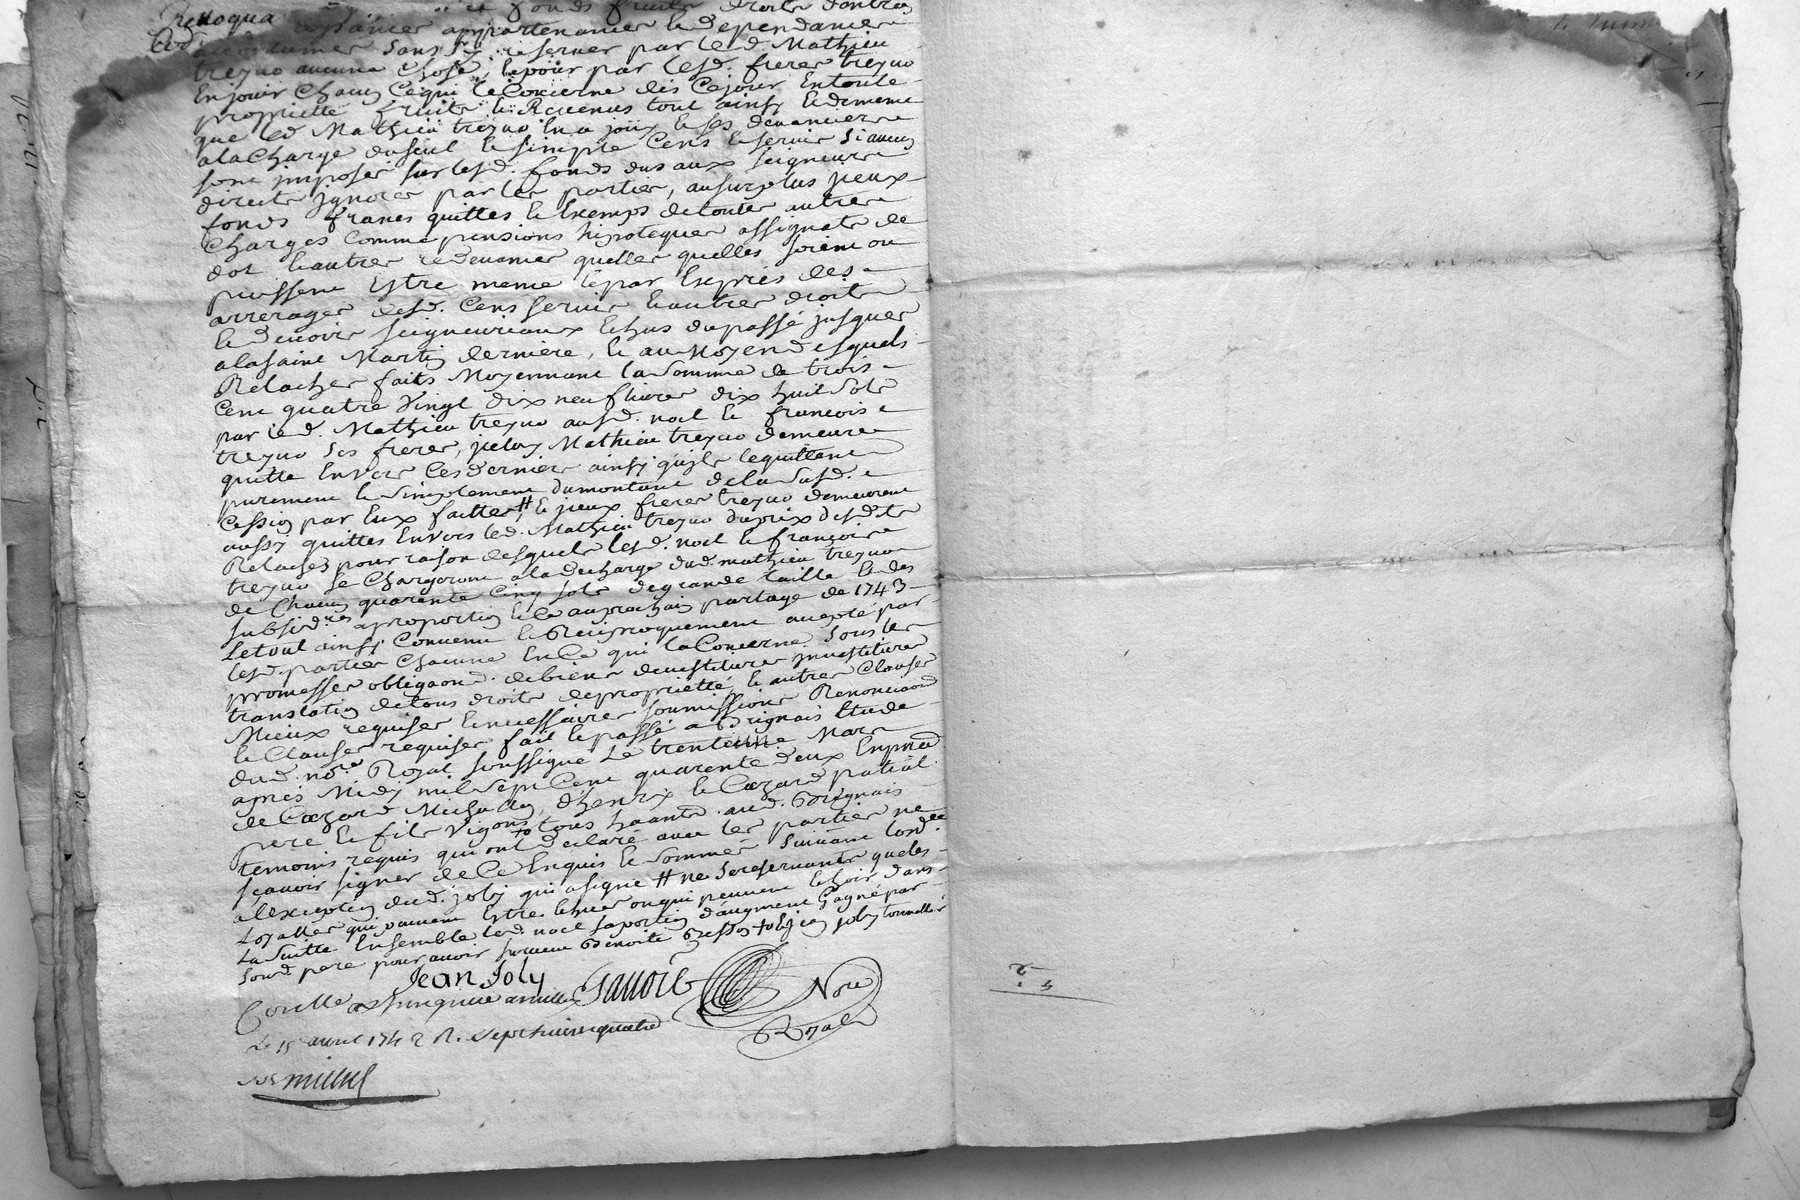 fonds fruits droits
appartenances & dependances
accoutumés sans s'y reserver par led. Mathieu
treyvo aucune chose, & pour par lesd. freres treyvo
En jouir Chacun Ce qui le Concerne dès Ce jour En toute
proprietté fruits & Revenus tout ainsy & de meme
que led Mathieu treyvo En a joüy & ses devanciers
a la Charge du seul & simple Cens & servis si aucun
sont imposés sur lesd. fonds dus aux seigneurs
directs ignorés par les parties, au surplus iceux
fonds francs quittes & Exempts de toutes autres
Charges comme pensions hipoteques assignats de
dot & autres redevances quelles quelles soient ou
puissent Estre meme & par Exprès des
arrerages desd. Cens servis & autres droits
& devoirs seigneuriaux Echus du passé jusques
a la saint Martin derniere, & au Moyen desquels
Relaches faits Moyennant la somme de trois
Cent quatre Vingt dix neuf livres dix huit sols
par led. Mathieu treyvo ausd. noel & francois
treyvo ses freres, iceluy Mathieu treyvo demeure
quitte Envers Ces derniers ainsy qu'ils le quittent
purement & simplement du montant de la susd.
Cession par Eux faitte, # & iceux freres treyvo demeurent
aussy quittes Envers led. Mathieu treyvo du prix desdits
Relaches pour raison desquels lesd. noel & francois
treyvo se Chargeront a la decharge dud. mathieu treyvo
de Chacun quarente Cinq sols de grande taille & des
subsid.res a proportion & Ce au prochain partage de 1743
Le tout ainsy Convenu & Reciproquement accepté par
lesd. parties Chacune En Ce qui la Concerne sous les
promesses obligaons. de biens devestitures investitures
translation de tous droits de proprietté & autres Clauses
Mieux requises & necessaires soumissions Renonciaons
& Clauses requises fait & passé a Brignais Etude
dud. no.re Royal soussigné Le trente Mars
après Midy mil sept Cent quarente deux En pnce
de Cozard Michadon, d'henry & Cozard patial
pere & fils Vigons + tous haants. aud. Brignais
temoins requis qui ont declaré avec les parties ne
sçavoir signer de Ce Enquis & sommés suivant lord.ce
a l'exception dud. joly qui a signé # ne se reservants quels
Loyaller qui peuvent Estre Echus ou qui peuvent Echoir dans
La suitte Ensemble led. noel sa portion d'augment Gagné par
sond. pere pour avoir survecu Benoite Bresson + & jean joly tonnellier
Jean Joly Gauois Nore
Royal
Conllé a st Genis
Le 15 avril 1742 R. sept livres quatre